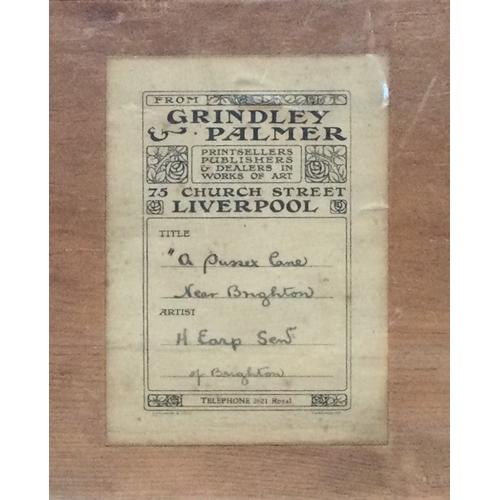 FROM
GRINDLEY
& PALMER
PRINTSELLERS
PUBLISHERS
& DEALERS IN
WORKS OF ART
75 CHURCH STREET
LIVERPOOL
TITLE
"A Sussex Lane
Near Brighton
ARTIST
H Earp Senr
of Brighton
TELEPHONE 2621 Royal